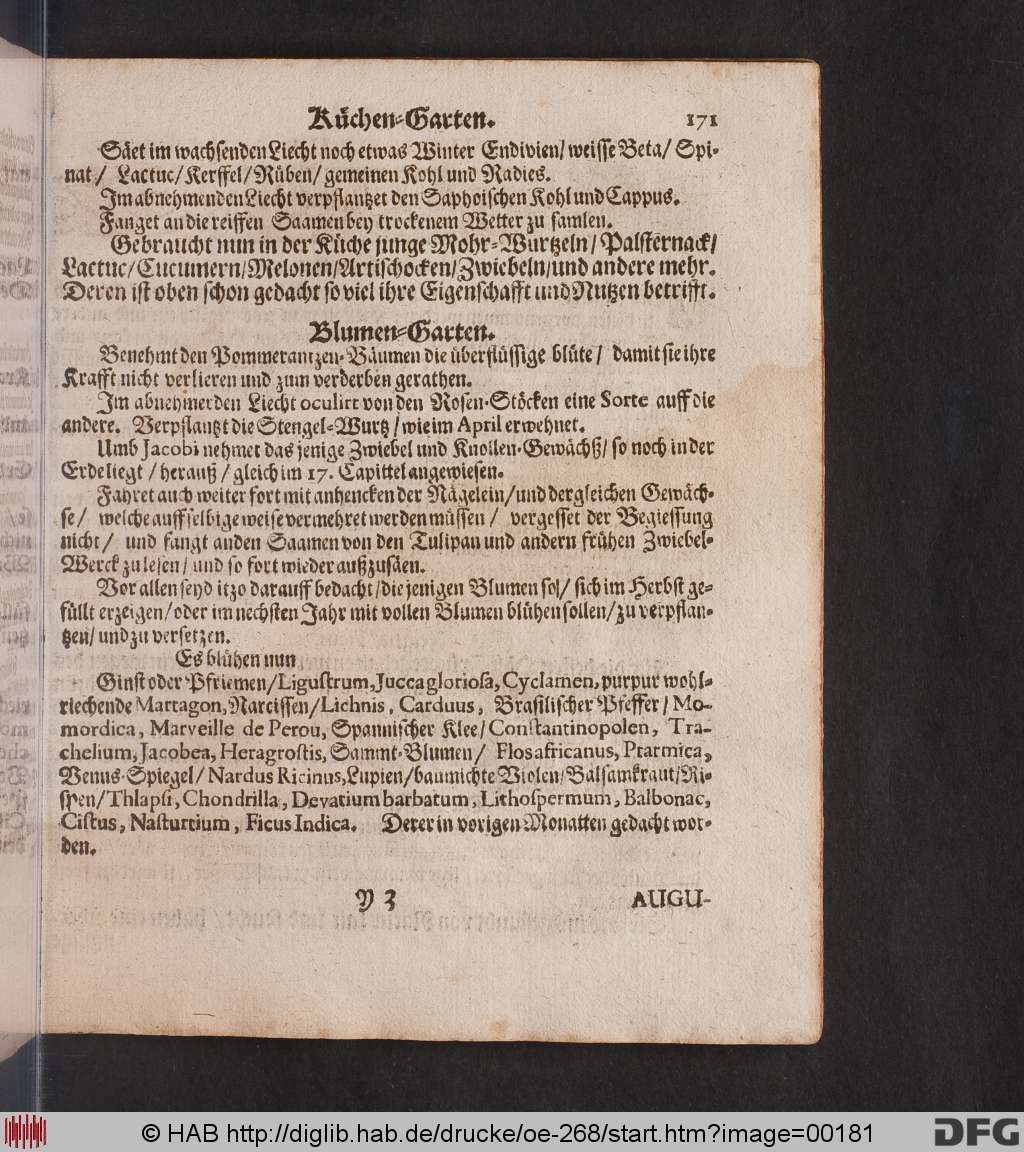 Küchen-Garten. 171
Säet im wachsenden Liecht noch etwas Winter Endivien/ weisse Beta/ Spi-
nat/ Lactuc/ Kerffel/ Rüben/ gemeinen Kohl und Radies.
Im abnehmenden Liecht verpflantzet den Saphoischen Kohl und Cappus.
Fanget an die reiffen Saamen bey trockenem Wetter zu samlen.
Gebraucht nun in der Küche junge Mohr-Wurtzeln/ Palsternack/
Lactuc/ Cucumern/ Melonen/ Artischocken/ Zwiebeln/ und andere mehr.
Deren ist oben schon gedacht so viel ihre Eigenschafft und Nutzen betrifft.
Blumen-Garten.
Benehmt den Pommerantzen-Bäumen die überflüssige blüte/ damit sie ihre
Krafft nicht verlieren und zum verderben gerathen.
Im abnehmenden Liecht oculirt von den Rosen-Stöcken eine Sorte auff die
andere. Verpflantzt die Stengel-Wurtz/ wie im April erwehnet.
Umb Jacobi nehmet das jenige Zwiebel und Knollen-Gewächß/ so noch in der
Erde liegt/ herauß/ gleich im 17. Capittel angewiesen.
Fahret auch weiter fort mit anhencken der Nägelein/ und dergleichen Gewäch-
se/ welche auff selbige weise vermehret werden müssen/ vergesset der Begiessung
nicht/ und fangt an den Saamen von den Tulipan und andern frühen Zwiebel-
Werck zu lesen/ und so fort wieder außzusäen.
Vor allen seyd itzo darauff bedacht/ die jenigen Blumen so/ sich im Herbst ge-
füllt erzeigen/ oder im nechsten Jahr mit vollen Blumen blühen sollen/ zu verpflan-
tzen/ und zu versetzen.
Es blühen nun
Ginst oder Pfriemen/ Ligustrum, Jucca gloriosa, Cyclamen, purpur wohl-
riechende Martagon, Narcissen/ Lichnis, Carduus, Brasilischer Pfeffer/ Mo-
mordica, Marveille de Perou, Spannischer Klee/ Constantinopolen, Tra-
chelium, Jacobea, Heragrostis, Sammt-Blumen/ Flos africanus, Ptarmica,
Venus-Spiegel/ Nardus Ricinus, Lupien/ baumichte Violen/ Balsamkraut/ Ri-
spen/ Thlapsi, Chondrilla, Devatium barbatum, Lithospermum, Balbonac,
Cistus, Nasturtium, Ficus Indica. Derer in vorigen Monatten gedacht wor-
den.
Y 3 AUGU-
© HAB http://diglib.hab.de/drucke/oe-268/start.htm?image=00181 DFG